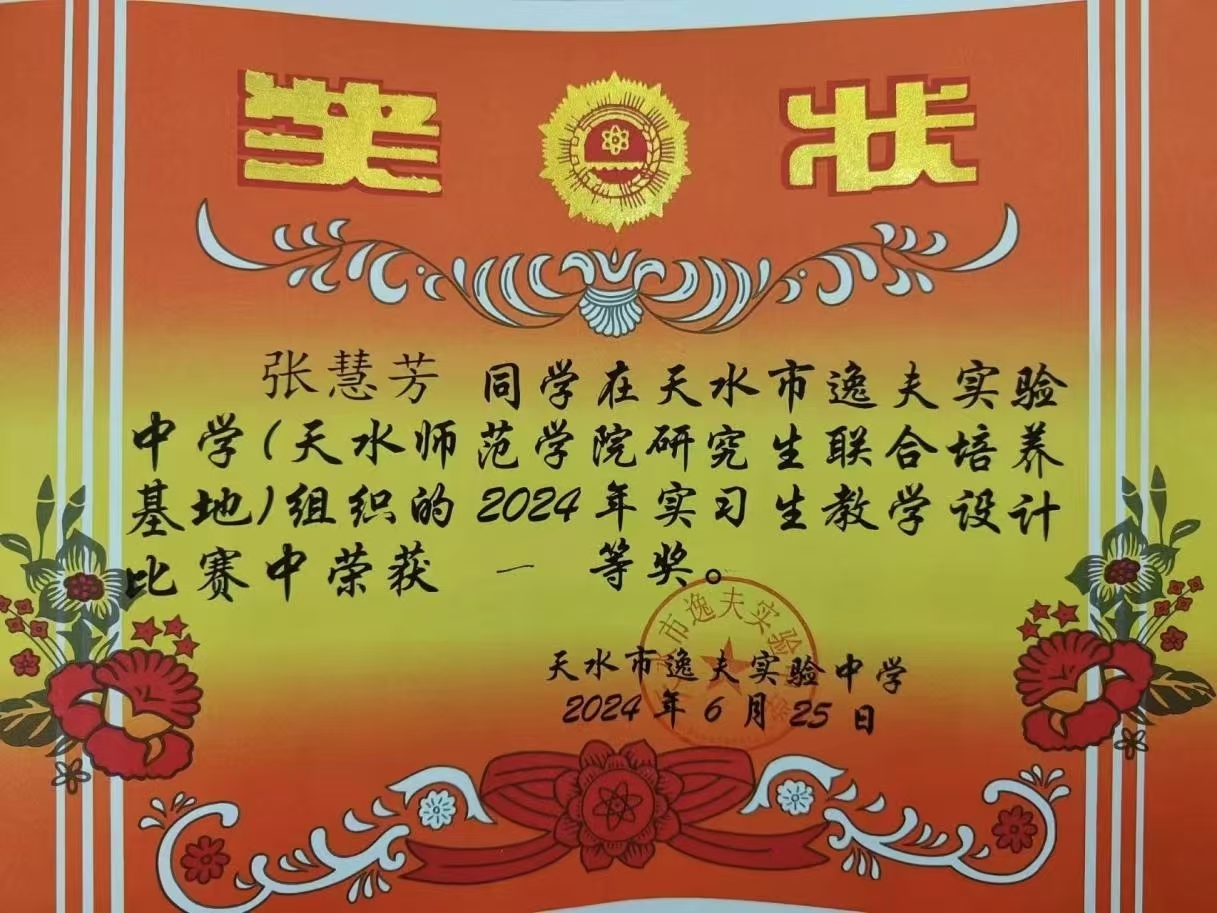 奖状
张慧芳 同学在天水市逸夫实验
中学(天水师范学院研究生联合培养
基地)组织的2024年实习生教学设计
比赛中荣获 一 等奖。
市逸夫实验
天水市逸夫实验中学
2024年6月25日